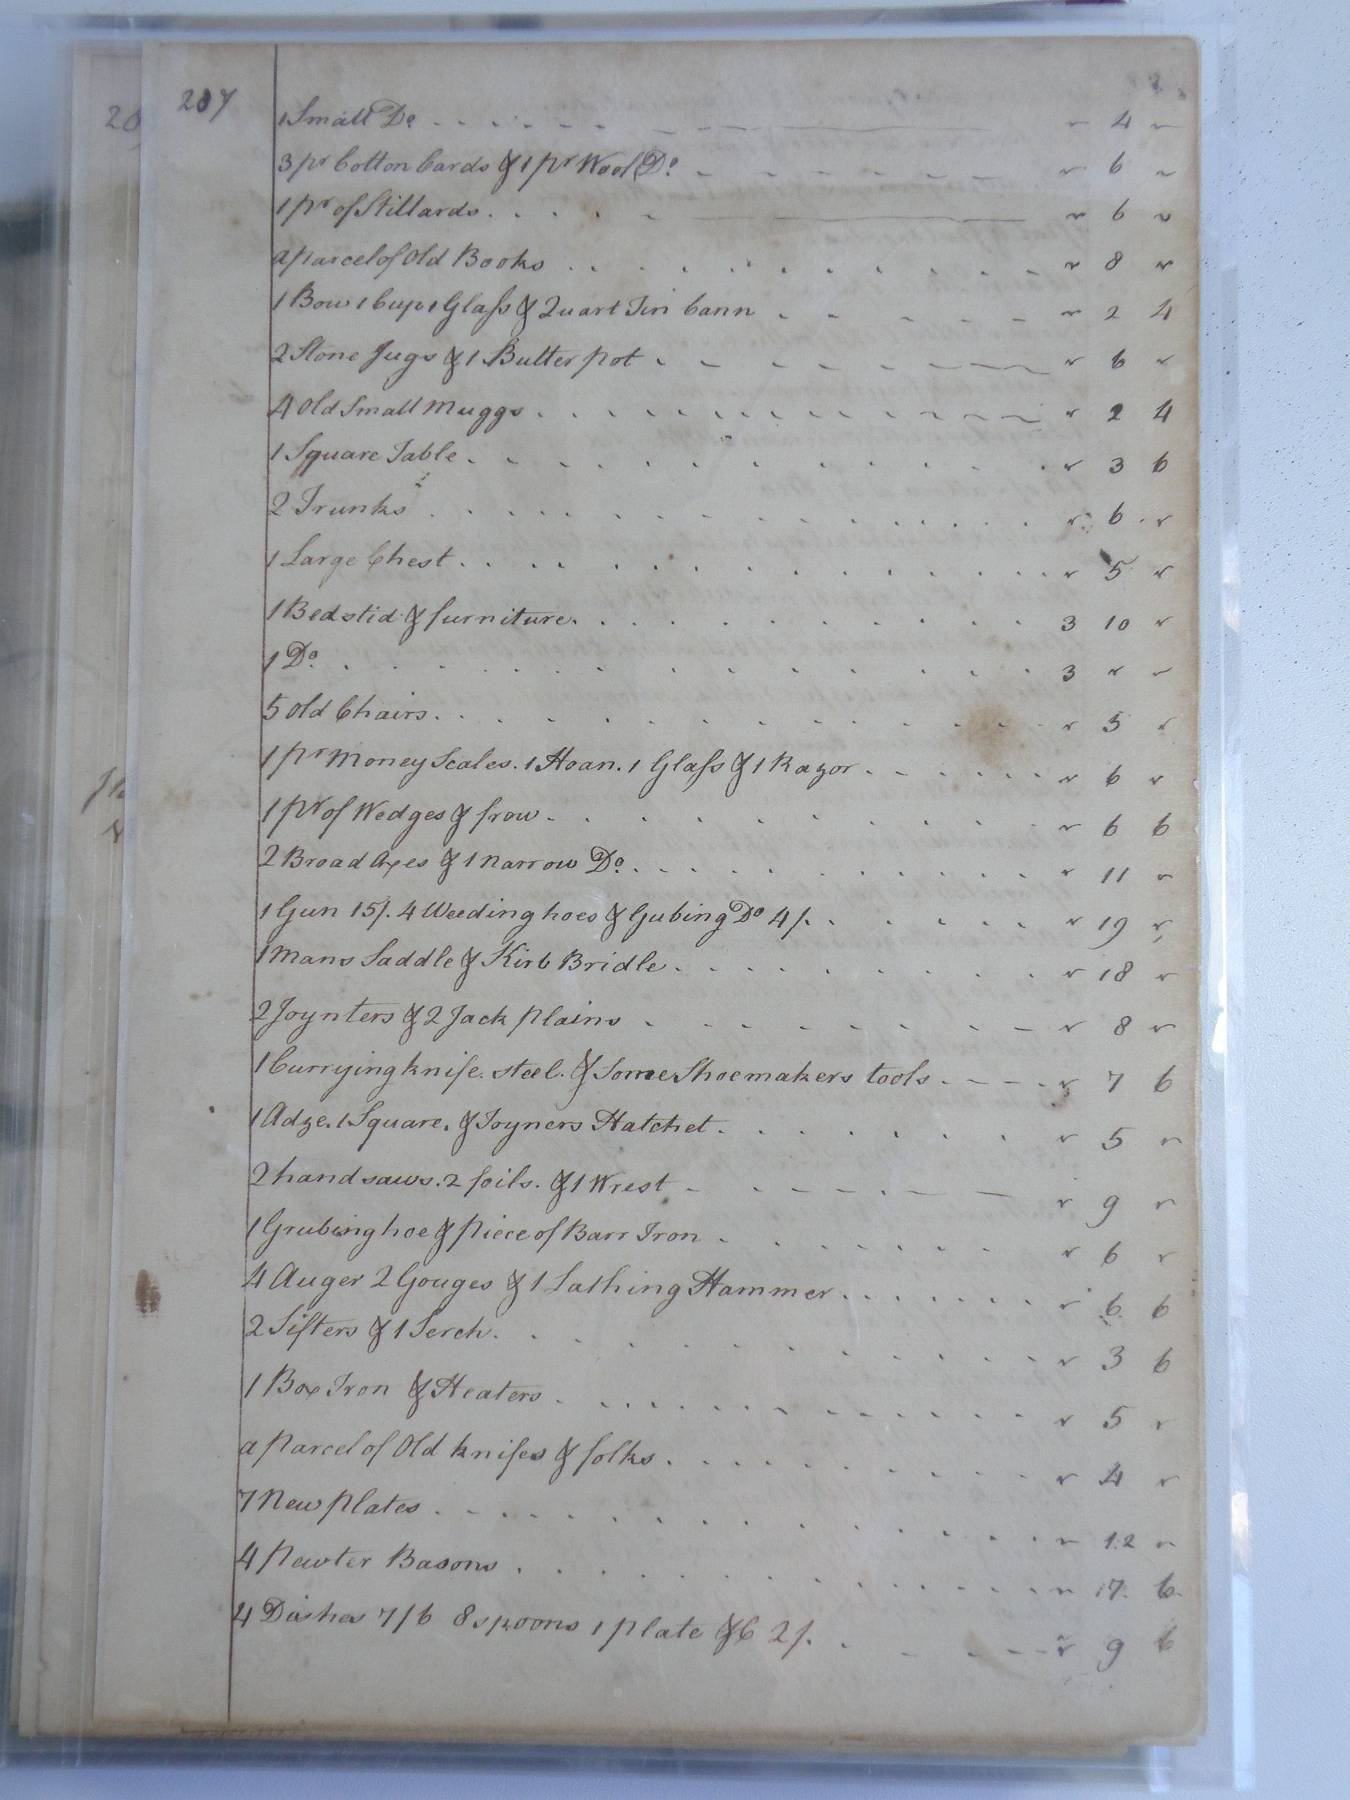 207
1 Small Do . . . . . " 4 "
3 pr Cotton Cards & 1 pr Wool Do . . . . . " 6 "
1 pr of Stillards . . . . . " 6 "
a parcel of Old Books . . . . . " 8 "
1 Bow 1 Cup 1 Glass & Quart Tin Cann . . . . . " 2 4
2 Stone Jugs & 1 Butter pot . . . . . " 6 "
4 Old Small Muggs . . . . . " 2 4
1 Square Table . . . . . " 3 6
2 Trunks . . . . . " 6 "
1 Large Chest . . . . . " 5 "
1 Bedstid & furniture . . . . . 3 10 "
1 Do . . . . . 3 " "
5 old Chairs . . . . . " 5 "
1 pr Money Scales. 1 Hoan. 1 Glass & 1 Razor . . . . . " 6 "
1 pr of Wedges & frow . . . . . " 6 6
2 Broad Axes & 1 narrow Do . . . . . " 11 "
1 Gun 15/. 4 Weeding hoes & Gubing Do 4/. . . . . . " 19 "
1 Mans Saddle & Kirb Bridle . . . . . " 18 "
2 Joynters & 2 Jack plains . . . . . " 8 "
1 Currying knife. steel. & Some Shoemakers tools . . . . . " 7 6
1 Adze. 1 Square. & Joyners Hatchet . . . . . " 5 "
2 hand saws. 2 foils. & 1 Wrest . . . . . " 9 "
1 Grubing hoe & piece of Barr Iron . . . . . " 6 "
4 Auger 2 Gouges & 1 Lathing Hammer . . . . . " 6 6
2 Sifters & 1 Serch . . . . . " 3 6
1 Box Iron & Heaters . . . . . " 5 "
a parcel of Old knifes & folks . . . . . " 4 "
7 New plates . . . . . " 12 "
4 Pewter Basons . . . . . " 17 6
4 Dishes 7/6 8 spoons 1 plate &C 2/. . . . . . " 9 6